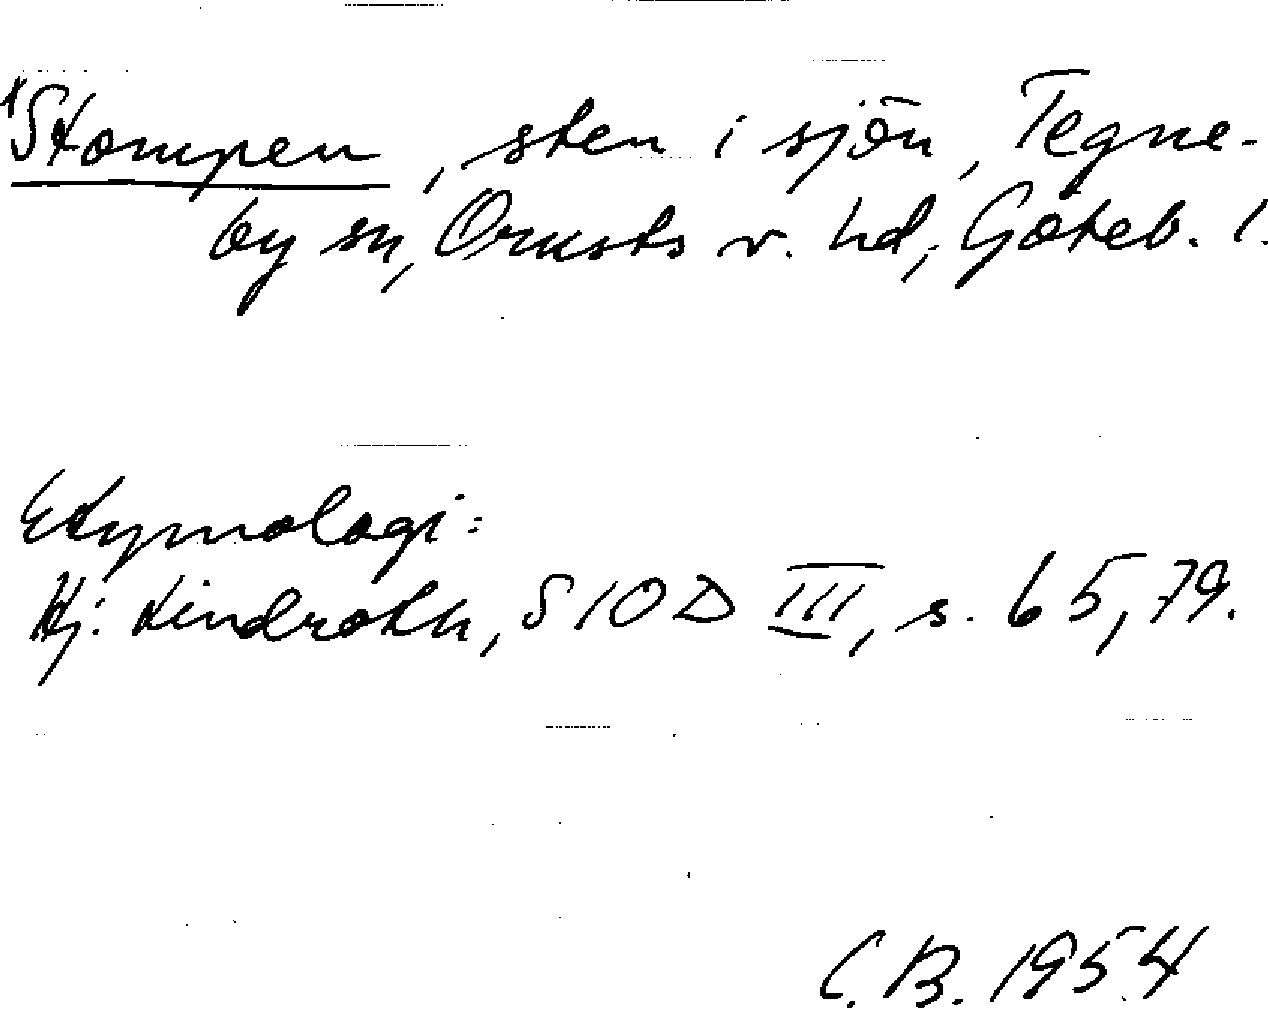 *Stompen, sten i sjön, Tegne-
by sn, Orusts v. hd, Göteb. l.
Etymologi:
Hj. Lindroth, SIOD III, s. 65, 79.
C. B. 1954